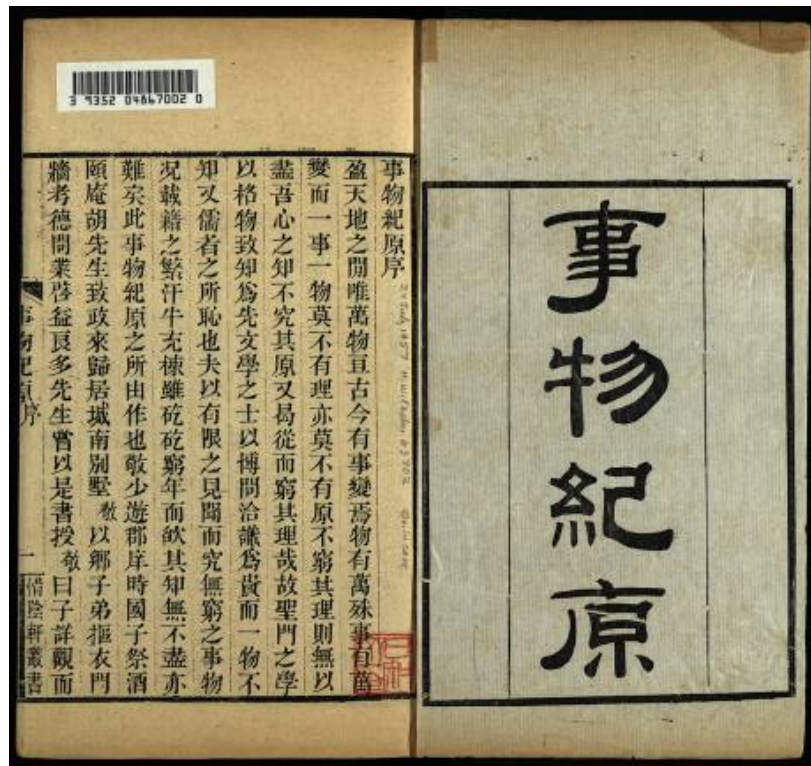 事物紀原
3 9352 04867002 0
事物紀原序
盈天地之閒唯萬物亘古今有事變焉物有萬殊事有萬
變而一事一物莫不有理亦莫不有原不窮其理則無以
盡吾心之知不究其原又曷從而窮其理哉故聖門之學
以格物致知爲先文學之士以博聞洽識爲貴而一物不
知又儒者之所恥也夫以有限之見聞而究無窮之事物
况載籍之繁汗牛充棟雖矻矻窮年而欲其知無不盡亦
難矣此事物紀原之所由作也敬少遊郡庠時國子祭酒
頤庵胡先生致政來歸居城南別墅敬以鄉子弟摳衣門
牆考德問業啓益良多先生嘗以是書授敬曰子詳觀而
事物紀原序 一 惜陰軒叢書